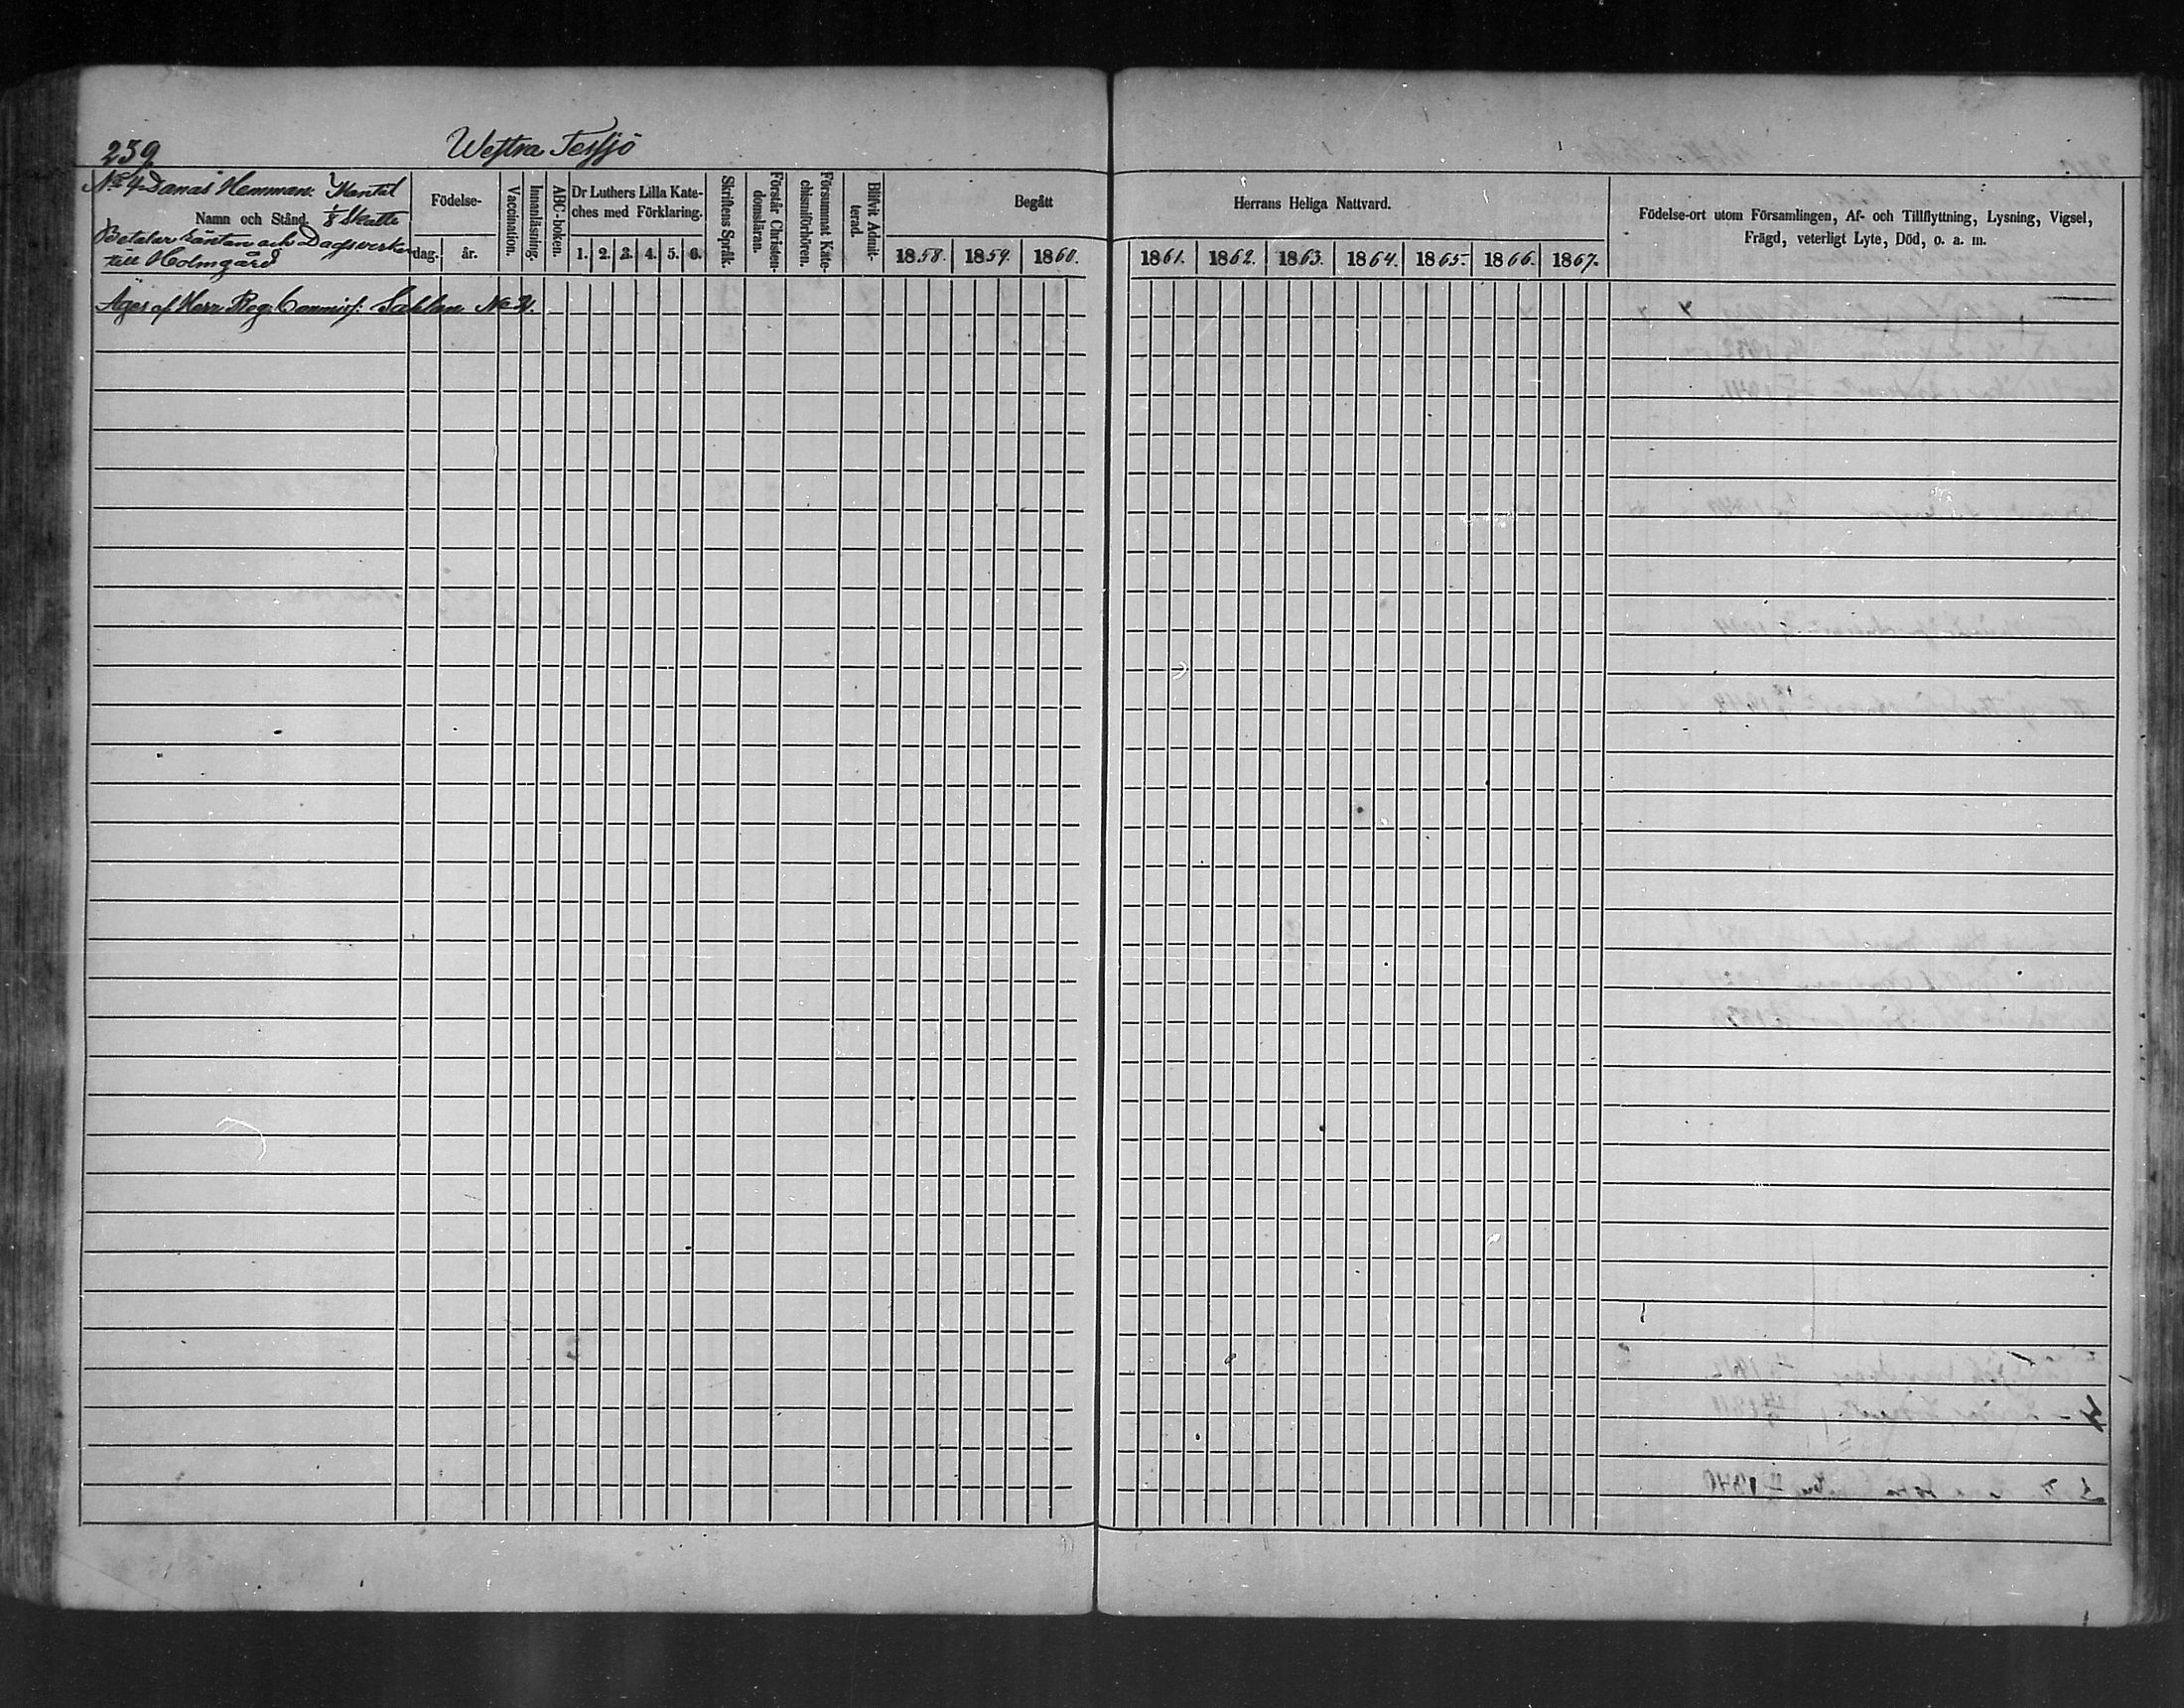 259 Westra Tessjö
No 4 Danas Hemman. Mantal
Namn och Stånd. 1/8 Skatte
Betalar räntan och Dagsverken
till Holmgård
Födelse-
dag. år.
Vaccination.
Innanläsning.
ABC-boken.
Dr Luthers Lilla Kate-
ches med Förklaring.
1. 2. 3. 4. 5. 6.
Skriftens Språk.
Förstår Christen-
domsläran.
Försummat Kate-
chismiförhören.
Blifvit Admit-
terad.
Begått
1858. 1859. 1860.
Herrans Heliga Nattvard.
1861. 1862. 1863. 1864. 1865. 1866. 1867.
Födelse-ort utom Församlingen, Af- och Tillflyttning, Lysning, Vigsel,
Frägd, veterligt Lyte, Död, o. a. m.
Äges af Herr Reg. Commiss: Sahlen No